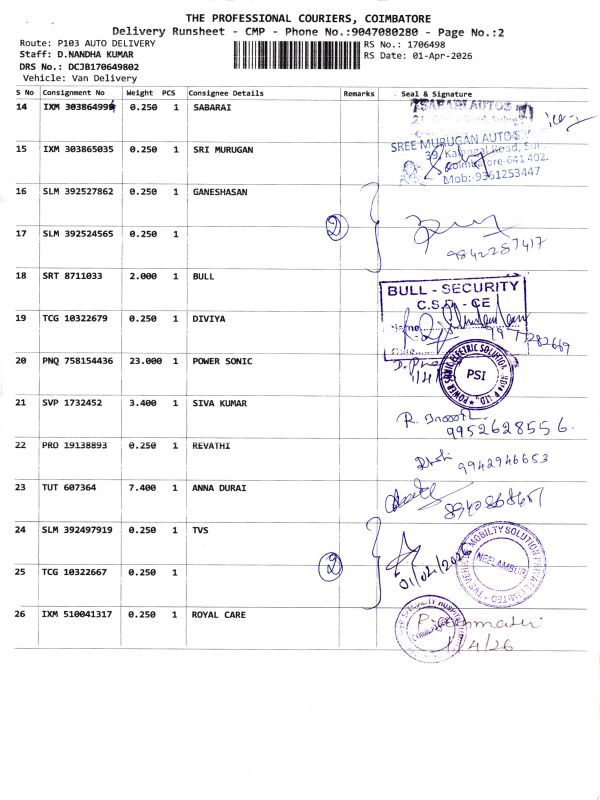 THE PROFESSIONAL COURIERS, COIMBATORE
Delivery Runsheet - CMP - Phone No.:9047080280 - Page No.:2
Route: P103 AUTO DELIVERY RS No.: 1706498
Staff: D.NANDHA KUMAR RS Date: 01-Apr-2026
DRS No.: DCJB170649802
Vehicle: Van Delivery
S No Consignment No Weight PCS Consignee Details Remarks Seal & Signature
14 IXM 303864994 0.250 1 SABARAI
SABARI AUTOS
15 IXM 303865035 0.250 1 SRI MURUGAN
SREE MURUGAN AUTO
39, Road,
Coimbatore-641 402.
Mob:-9361253447
16 SLM 392527862 0.250 1 GANESHASAN
2
17 SLM 392524565 0.250 1
9842287417
18 SRT 8711033 2.000 1 BULL
BULL - SECURITY
19 TCG 10322679 0.250 1 DIVIYA
20 PNQ 758154436 23.000 1 POWER SONIC
PSI
21 SVP 1732452 3.400 1 SIVA KUMAR
9952628556
22 PRO 19138893 0.250 1 REVATHI
9942946653
23 TUT 607364 7.400 1 ANNA DURAI
24 SLM 392497919 0.250 1 TVS
2
01/04/2026
NEELAMBUR
25 TCG 10322667 0.250 1
26 IXM 510041317 0.250 1 ROYAL CARE
1/4/26